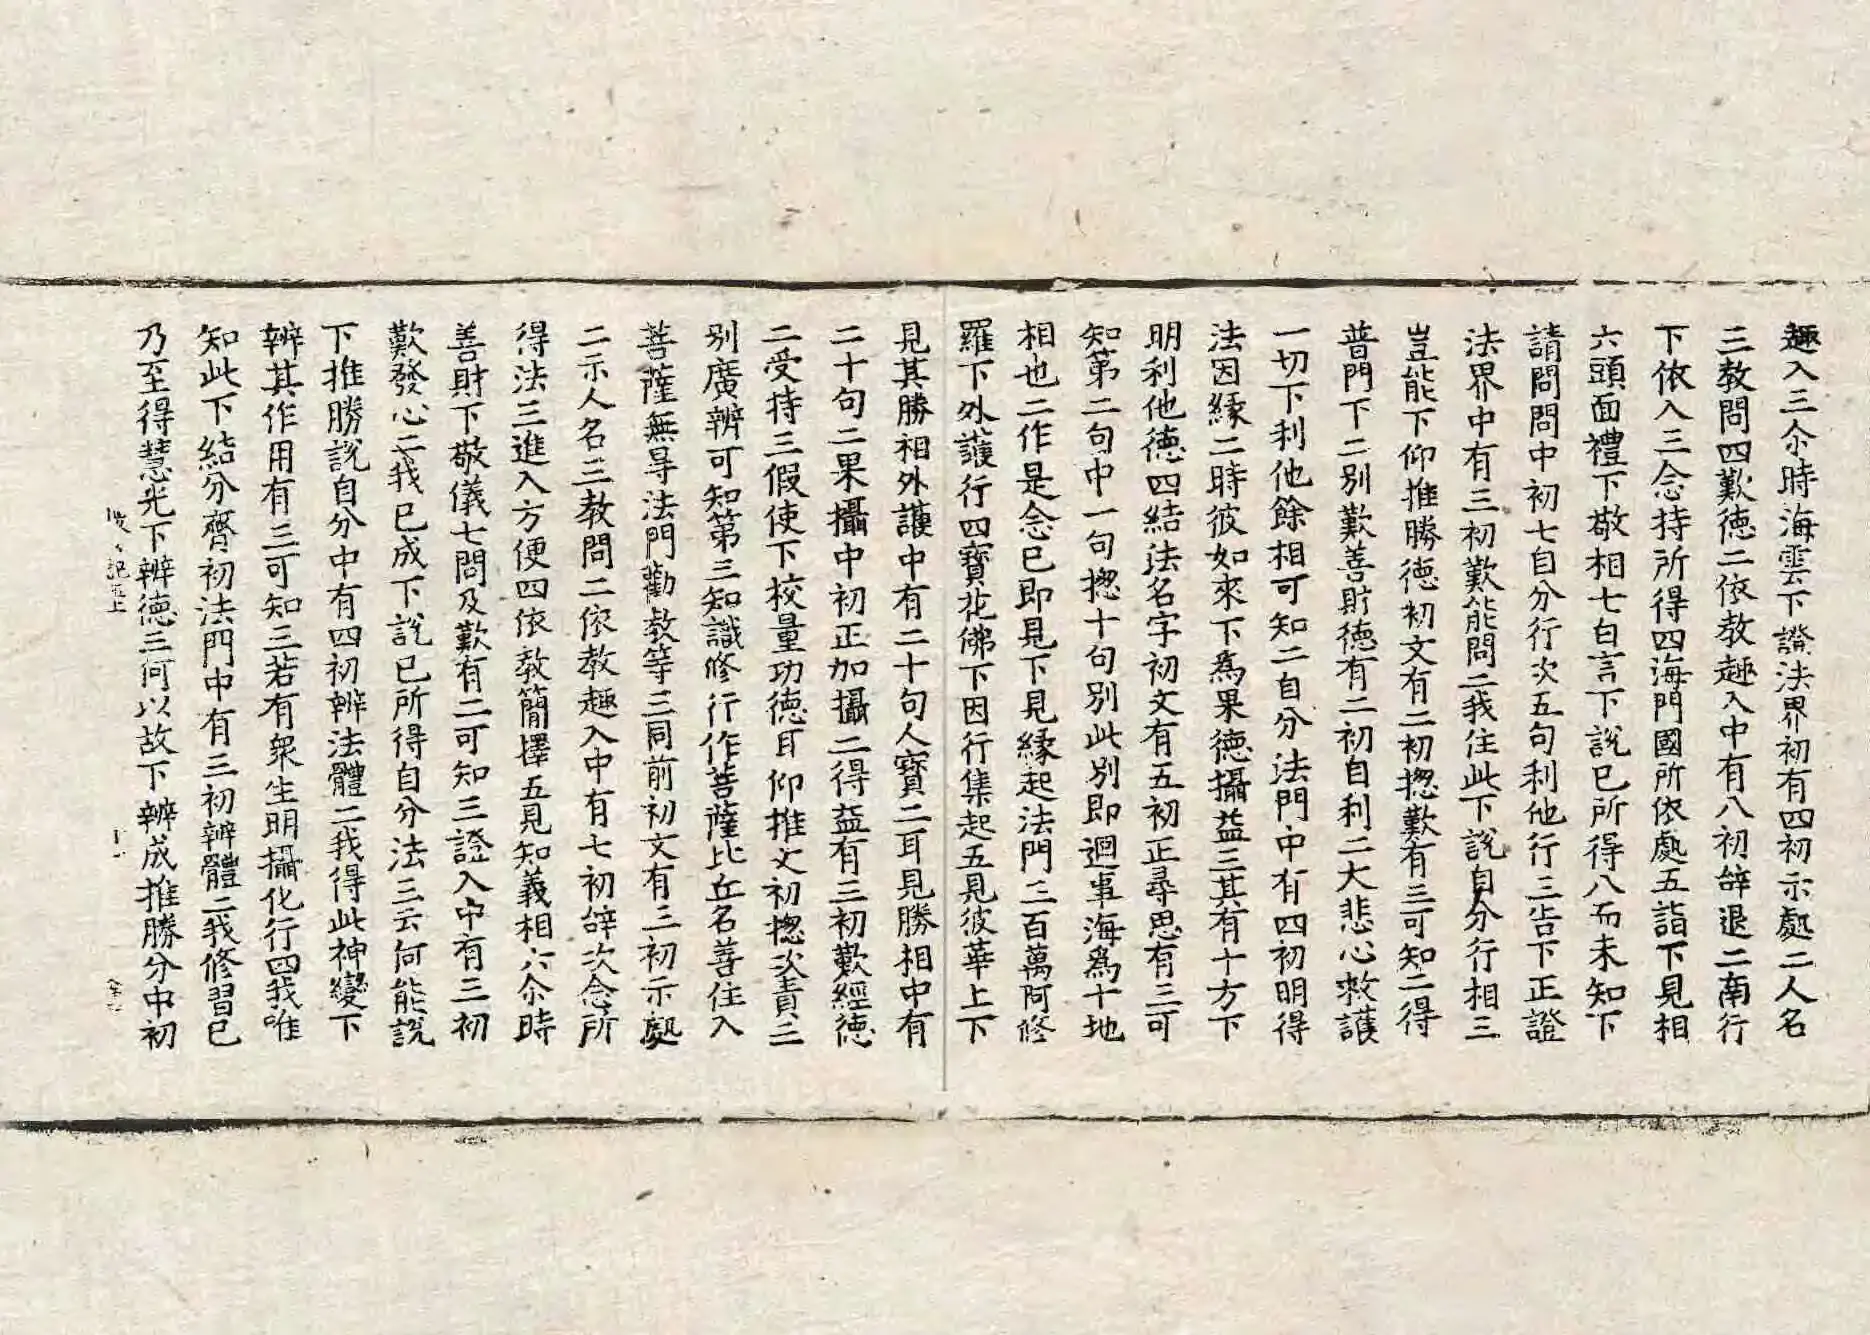 趣入三尒時海雲下證法界初有四初示處二人名
三教問四歎德二依教趣入中有八初辞退二南行
下依入三念持所得四海門國所依處五詣下見相
六頭面禮下敬相七白言下說已所得八而未知下
請問問中初七自分行次五句利他行三告下正證
法界中有三初歎能問二我住此下說自分行相三
豈能下仰推勝德初文有二初揔歎有三可知二得
普門下二別歎善財德有二初自利二大悲心救護
一切下利他餘相可知二自分法門中有四初明得
法因緣二時彼如來下為果德攝益三其有十方下
明利他德四結法名字初文有五初正尋思有三可
知第二句中一句揔十句別此別即迴事海為十地
相也二作是念已即見下見緣起法門三百萬阿修
羅下外護行四寶花佛下因行集起五見彼華上下
見其勝相外護中有二十句人寶二耳見勝相中有
二十句二果攝中初正加攝二得益有三初歎經德
二受持三假使下校量功德耳仰推文初揔次責三
別廣辨可知第三知識修行作菩薩比丘名善住入
菩薩無㝵法門勸教等三同前初文有三初示處
二示人名三教問二依教趣入中有七初辞次念所
得法三進入方便四依教簡擇五見知義相六尒時
善財下敬儀七問及歎有二可知三證入中有三初
歎發心二我已成下說已所得自分法三云何能說
下推勝說自分中有四初辨法體二我得此神變下
辨其作用有三可知三若有衆生明攝化行四我唯
知此下結分齊初法門中有三初辨體二我修習已
乃至得慧光下辨德三何以故下辨成推勝分中初